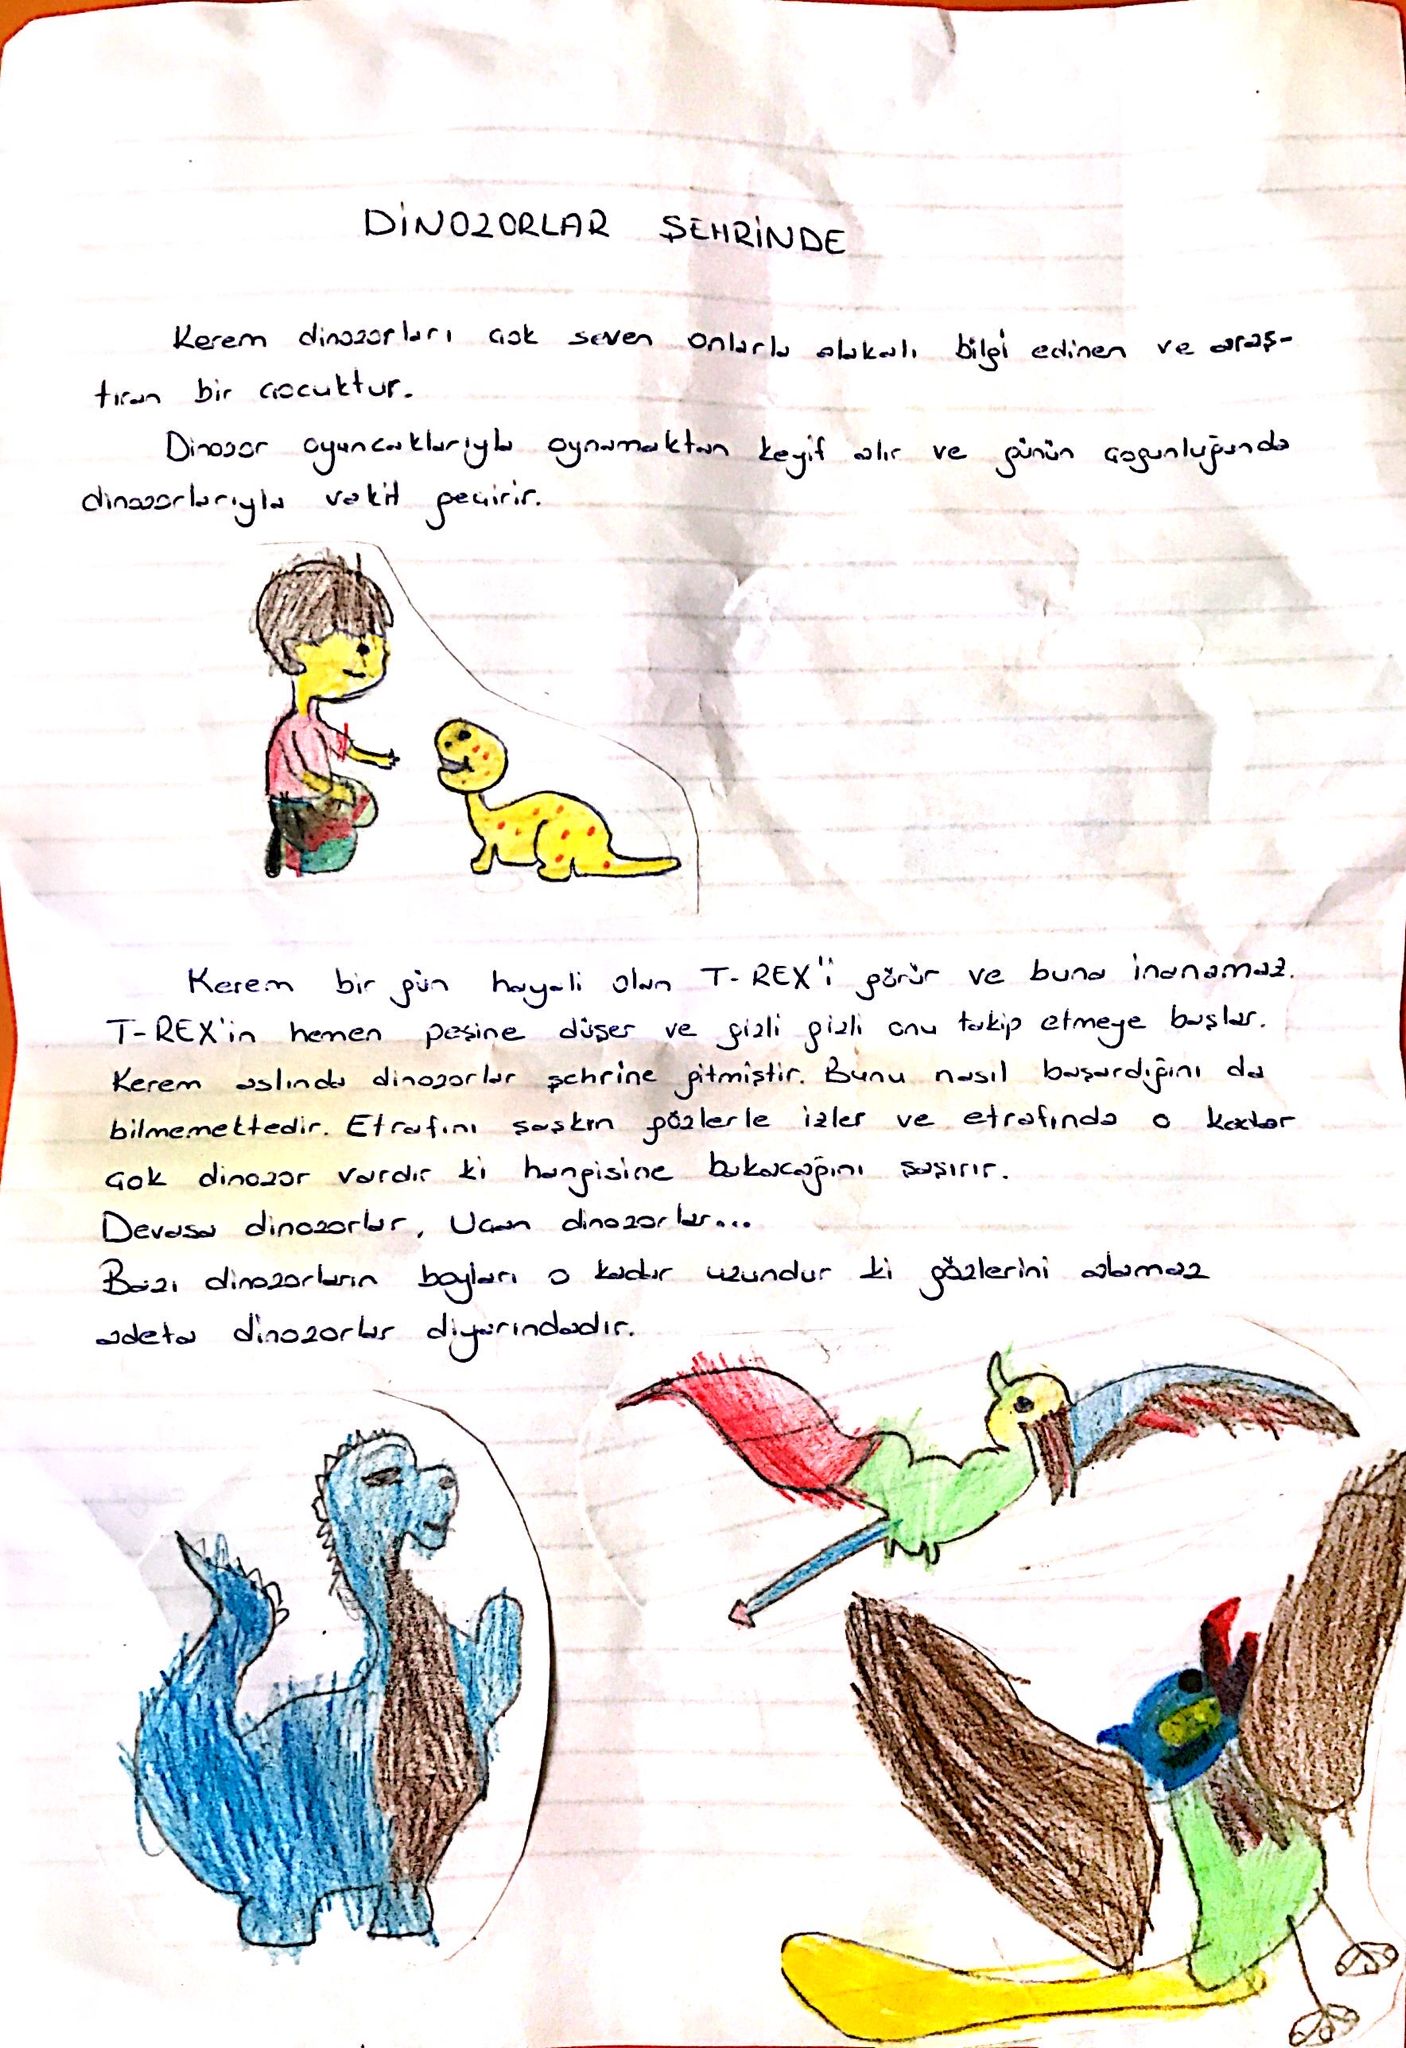 DİNOZORLAR ŞEHRİNDE
Kerem dinozorları çok seven onlarla alakalı bilgi edinen ve araş-
tıran bir çocuktur.
Dinozor oyuncaklarıyla oynamaktan keyif alır ve günün çoğunluğunda
dinozorlarıyla vakit geçirir.
Kerem bir gün hayali olan T-REX'i görür ve buna inanamaz.
T-REX'in hemen peşine düşer ve gizli gizli onu takip etmeye başlar.
Kerem aslında dinozorlar şehrine gitmiştir. Bunu nasıl başardığını da
bilmemektedir. Etrafını şaşkın gözlerle izler ve etrafında o kadar
çok dinozor vardır ki hangisine bakacağını şaşırır.
Devasa dinozorlar, Uçan dinozorlar...
Bazı dinozorların boyları o kadar uzundur ki gözlerini alamaz
adeta dinozorlar diyarındadır.